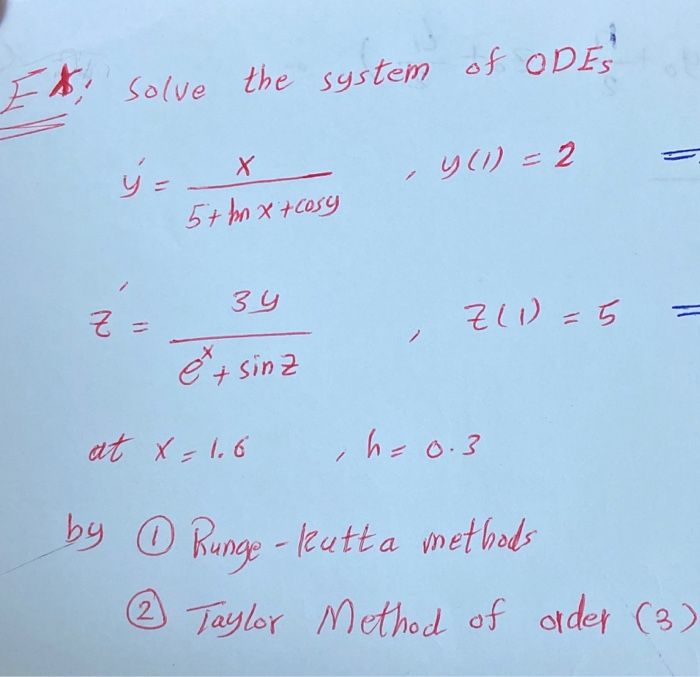 Ex; Solve the system of ODEs
y' = x / (5 + ln x + cos y) , y(1) = 2 =
z' = 3y / (e^x + sin z) , z(1) = 5 =
at x = 1.6 , h = 0.3
by ① Runge-Kutta methods
② Taylor Method of order (3)